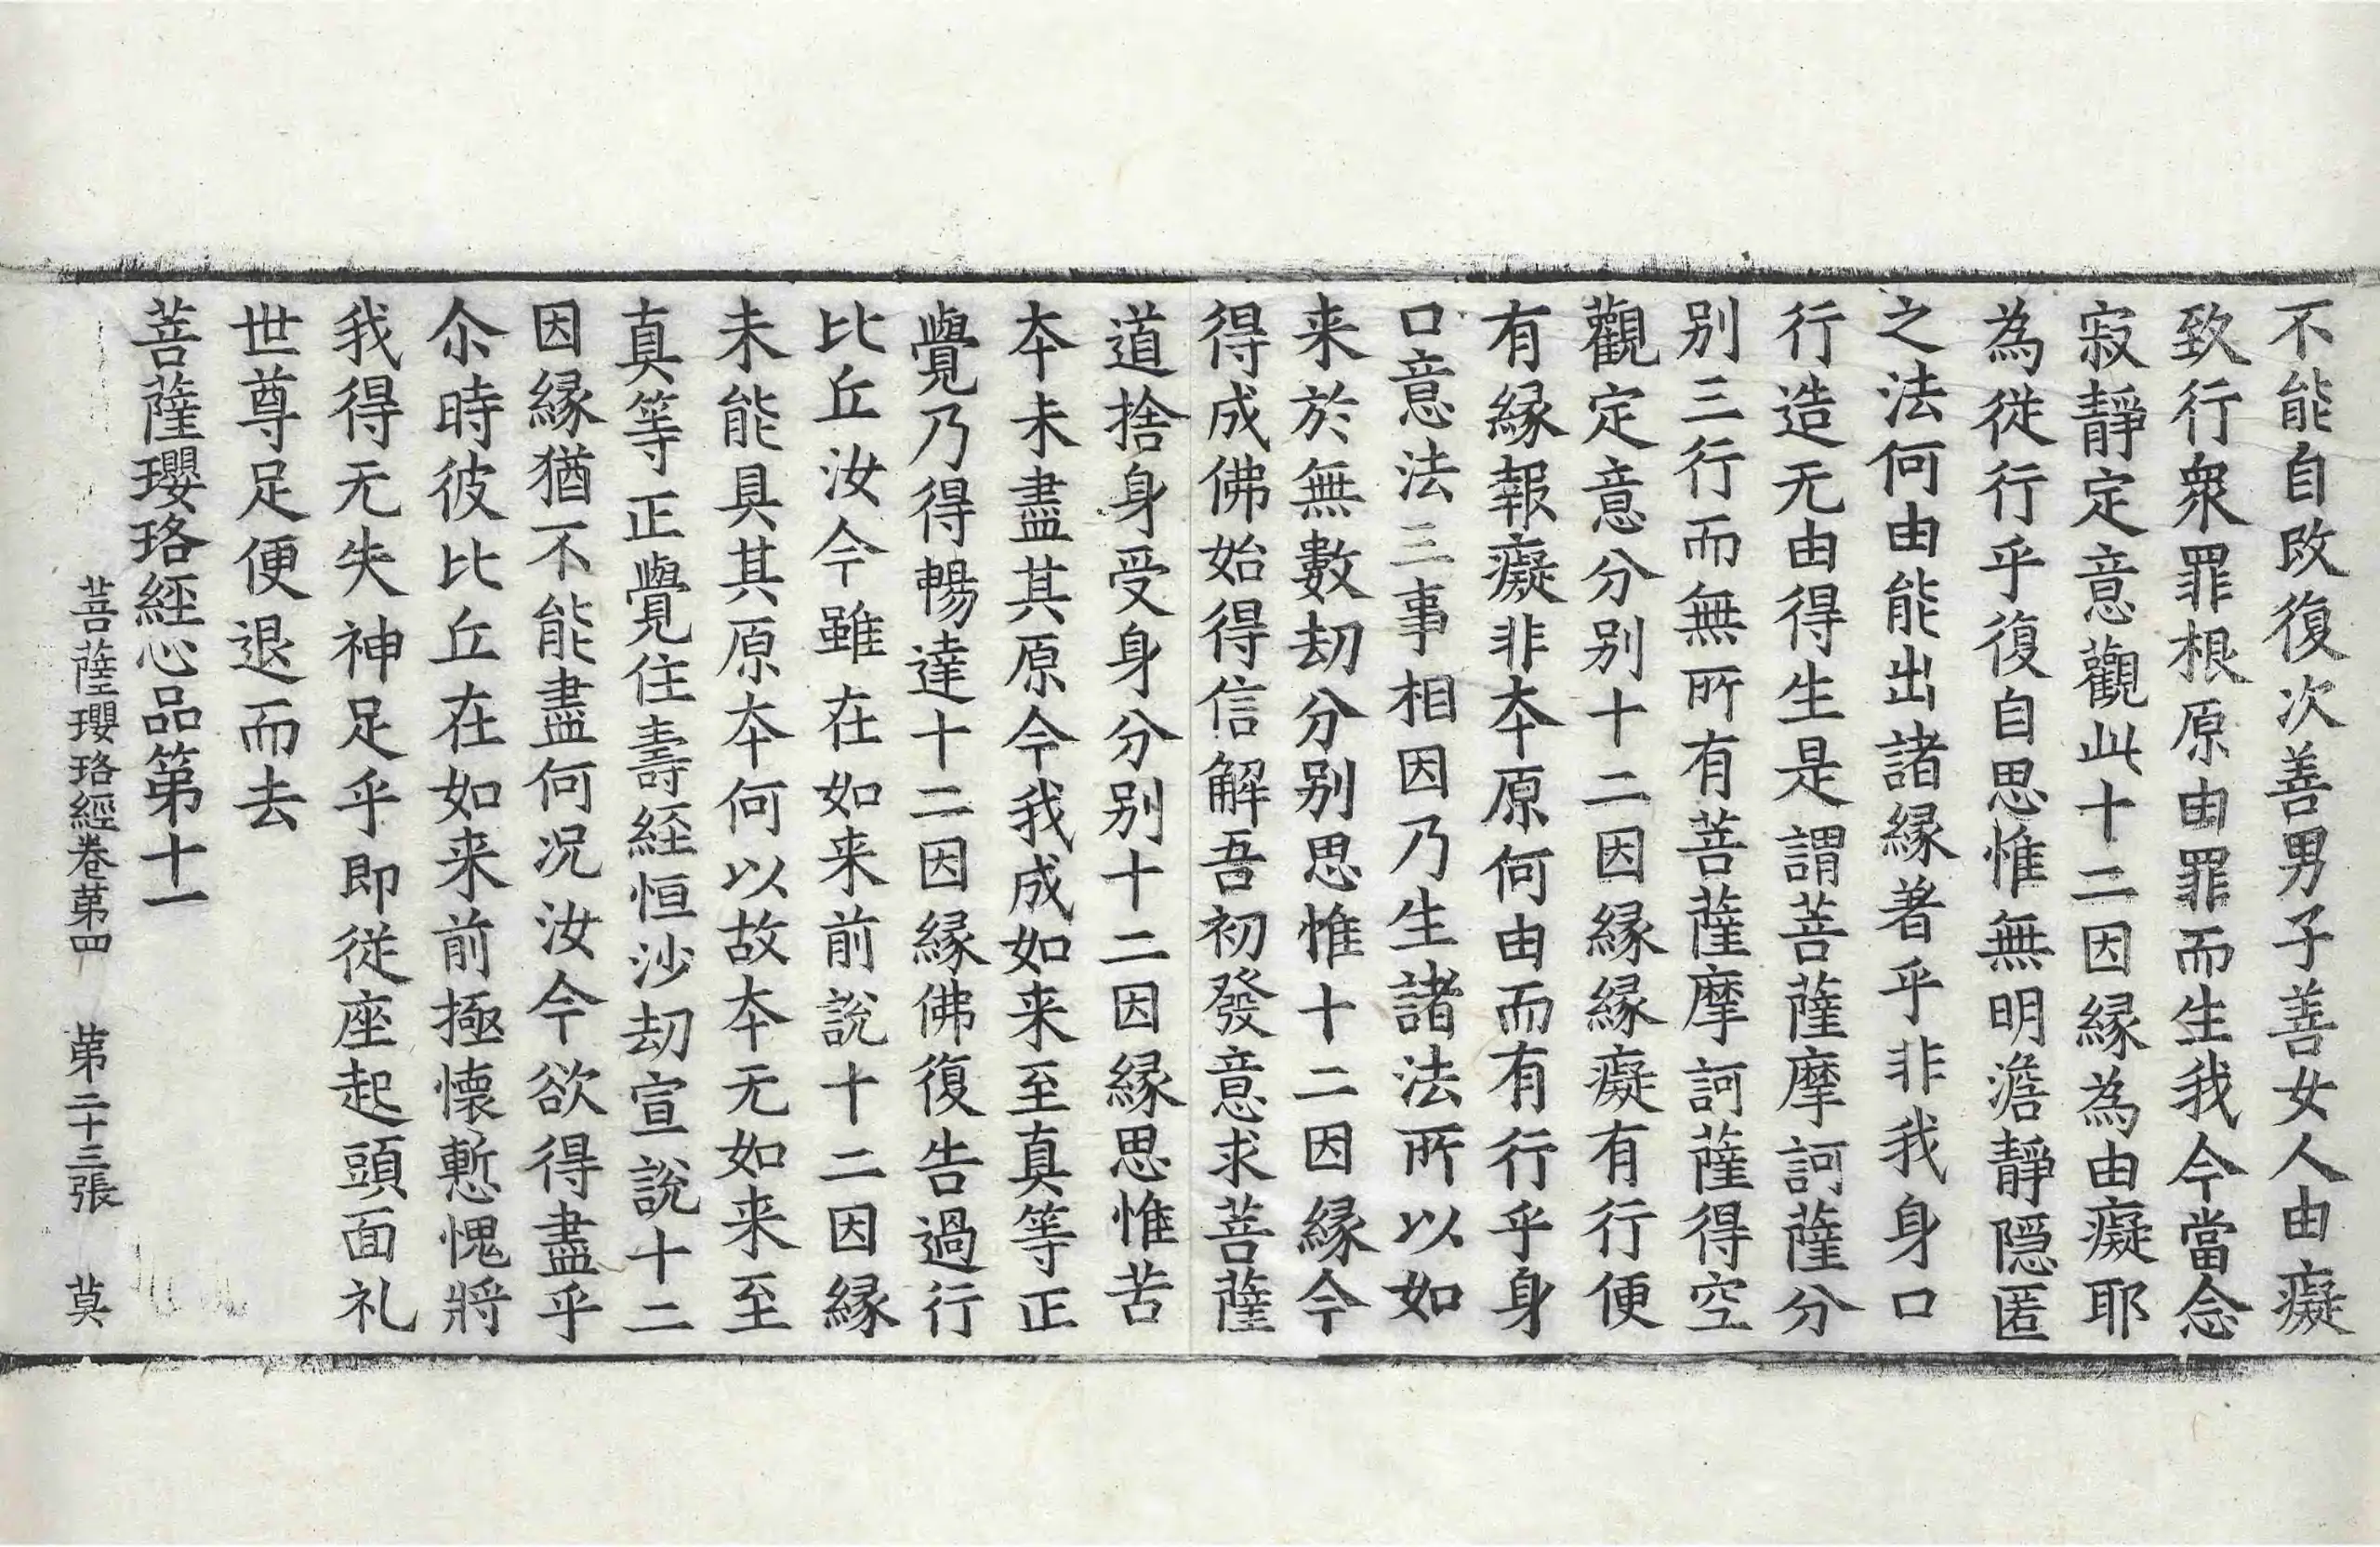 不能自改復次善男子善女人由癡
致行衆罪根原由罪而生我今當念
寂靜定意觀此十二因縁為由癡耶
為從行乎復自思惟無明澹靜隱匿
之法何由能出諸縁著乎非我身口
行造无由得生是謂菩薩摩訶薩分
别三行而無所有菩薩摩訶薩得空
觀定意分别十二因縁縁癡有行便
有縁報癡非夲原何由而有行乎身
口意法三事相因乃生諸法所以如
来於無數劫分别思惟十二因縁今
得成佛始得信解吾初發意求菩薩
道捨身受身分别十二因縁思惟苦
夲未盡其原今我成如来至真等正
覺乃得暢達十二因縁佛復告過行
比丘汝今雖在如来前說十二因縁
未能具其原夲何以故夲无如来至
真等正覺住壽經恒沙劫宣說十二
因縁猶不能盡何況汝今欲得盡乎
尒時彼比丘在如来前極懷慙愧將
我得无失神足乎即從座起頭面礼
世尊足便退而去
菩薩瓔珞經心品第十一
菩薩瓔珞經卷第四　第二十三張　莫